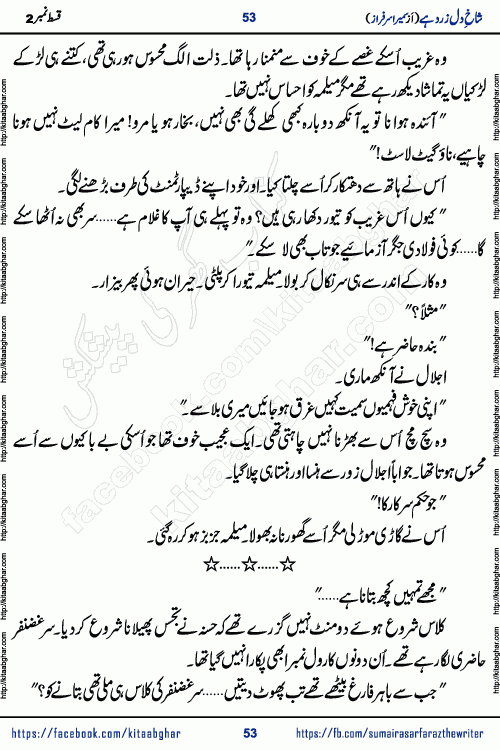 شاخِ دل زرد ہے (از سمیرا سرفراز)
53
قسط نمبر 2
وہ غریب اُسکے غصے کے خوف سے منمنا رہا تھا۔ ذلت الگ محسوس ہو رہی تھی، کتنے ہی لڑکے
لڑکیاں یہ تماشا دیکھ رہے تھے مگر میلمہ کو احساس نہیں تھا۔
"آئندہ ہوا نا تو یہ آنکھ دوبارہ کبھی کھلے گی بھی نہیں، بخار ہو یا مرو! میرا کام لیٹ نہیں ہونا
چاہیے، ناؤ گیٹ لاسٹ!"
اُس نے ہاتھ سے دھتکار کر اُسے چلتا کیا۔ اور خود اپنے ڈیپارٹمنٹ کی طرف بڑھنے لگی۔
"کیوں اُس غریب کو تیور دکھا رہی ہیں؟ وہ تو پہلے ہی آپ کا غلام ہے......سر بھی نہ اُٹھا سکے
گا......کوئی فولادی جگر آزمائیے جو تاب بھی لا سکے۔"
وہ کار کے اندر سے ہی سر نکال کر بولا۔ میلمہ تیورا کر پلٹی۔ حیران ہوئی پھر بیزار۔
"مثلاً؟"
"بندہ حاضر ہے!"
اجلال نے آنکھ ماری۔
"اپنی خوش فہمیوں سمیت کہیں غرق ہو جائیں میری بلا سے۔"
وہ سچ مچ اُس سے بھڑنا نہیں چاہتی تھی۔ ایک عجیب خوف تھا جو اُسکی بے باکیوں سے اُسے
محسوس ہوتا تھا۔ جواباً اجلال زور سے ہنسا اور ہنستا ہی چلا گیا۔
"جو حکم سرکار کا!"
اُس نے گاڑی موڑ لی مگر اُسے گھورنا نہ بھولا۔ میلمہ جزبز ہو کر رہ گئی۔
☆......☆......☆
"مجھے تمہیں کچھ بتانا ہے......"
کلاس شروع ہوئے دو منٹ نہیں گزرے تھے کہ حسنہ نے تجسس پھیلانا شروع کر دیا۔ سر غضنفر
حاضری لگا رہے تھے۔ اُن دونوں کا رول نمبر ابھی پکارا نہیں گیا تھا۔
"جب سے باہر فارغ بیٹھے تھے تب پھوٹ دیتیں......سر غضنفر کی کلاس ہی ملی تھی بتانے کو؟"
https://facebook.com/kitaabghar
53
https://fb.com/sumairasarfarazthewriter
http://kitaabghar.com
کتاب گھر کی پیشکش
facebook.com/kitaabghar
kitaabghar.com